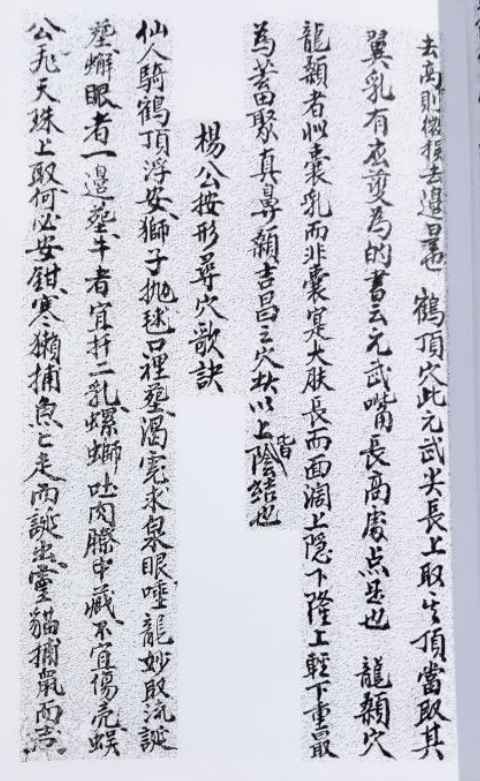 去高則微損去邊是也 鶴頂穴此元武尖長上取之頂當取其
翼乳有底護為的書云元武嘴長高處点是也 龍顙穴
龍顙者似囊乳而非囊寔大肤長而面濶上隐下隆上輕下重最
為蓄聚真鼻顙吉昌之穴状以上皆陰結也
楊公按形尋穴歌訣
仙人騎鶴頂浮安獅子抛毬口裡塟渴鹿求泉眼唾龍妙取流誕
塟蠏眼者一邉塟牛者宜扦二乳螺螄吐肉臁中藏不宜傷壳蜈
公天珠上取何必安鉗寒獺捕魚亡走而誕出靈貓捕鼠而志